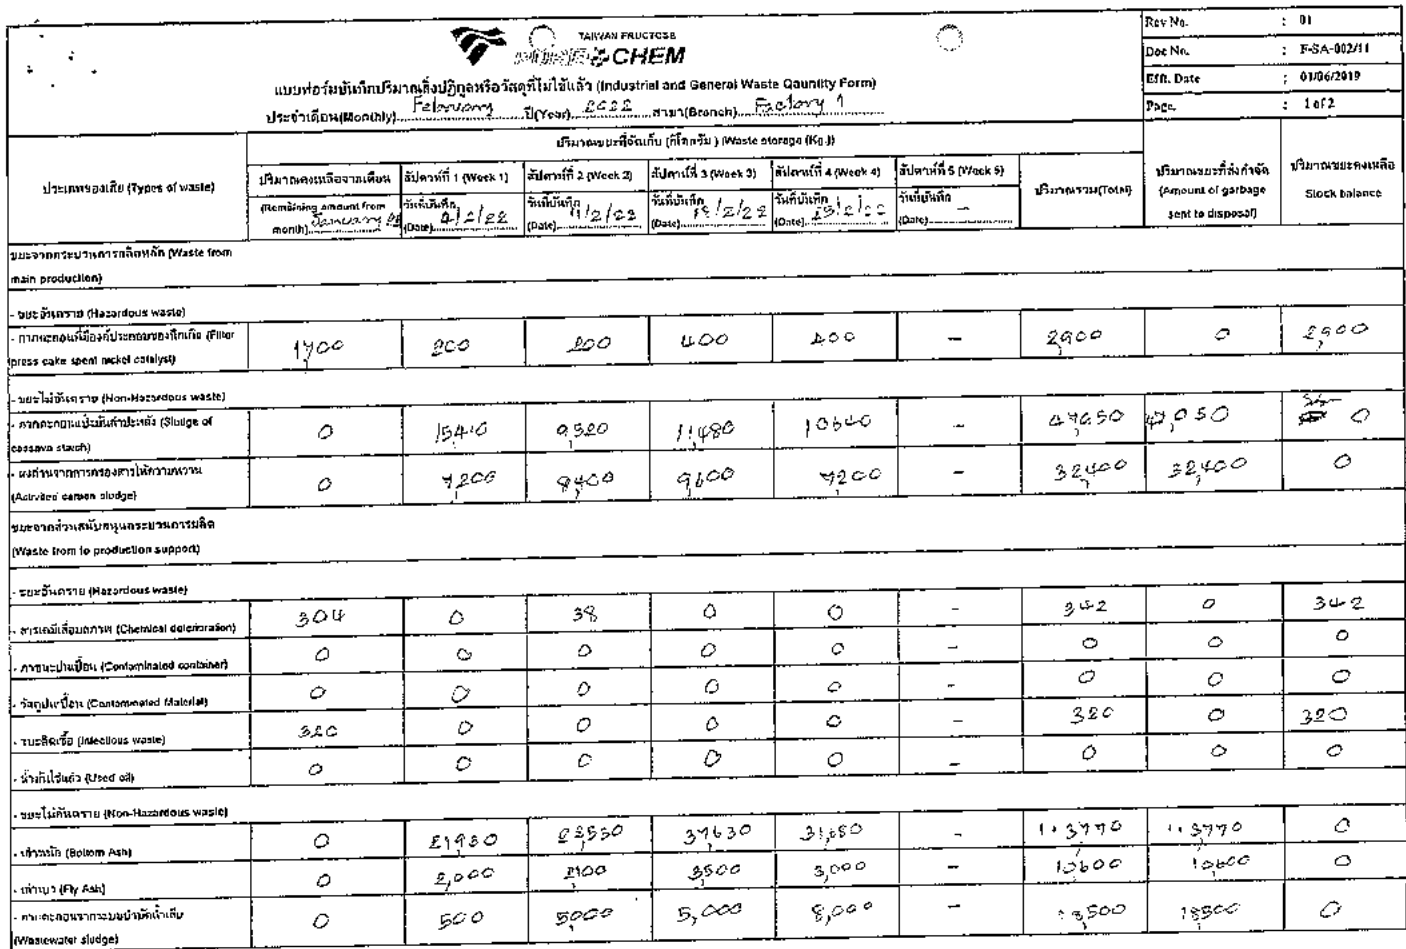 TAIWAN FRUCTOSE
CHEM
Rev No. : 01
Doc No. : F-SA-002/11
Effi. Date : 01/06/2019
Page. : 1 of 2
แบบฟอร์มบันทึกปริมาณสิ่งปฏิกูลหรือวัสดุที่ไม่ใช้แล้ว (Industrial and General Waste Qaunlity Form)
ประจำเดือน(Monthly) February ปี(Year) 2022 สาขา(Branch) Factory 1
ประเภทของเสีย (Types of waste)
ปริมาณขยะที่จัดเก็บ (กิโลกรัม) (Waste storage (Kg.))
ปริมาณคงเหลือจากเดือน (Remaining amount from month) January
สัปดาห์ที่ 1 (Week 1) วันที่บันทึก (Date) 4/2/22
สัปดาห์ที่ 2 (Week 2) วันที่บันทึก (Date) 11/2/22
สัปดาห์ที่ 3 (Week 3) วันที่บันทึก (Date) /2/22
สัปดาห์ที่ 4 (Week 4) วันที่บันทึก (Date) 25/2/22
สัปดาห์ที่ 5 (Week 5) วันที่บันทึก (Date) –
ปริมาณรวม(Total)
ปริมาณขยะที่ส่งกำจัด (Amount of garbage sent to disposal)
ปริมาณขยะคงเหลือ Stock balance
ขยะจากกระบวนการผลิตหลัก (Waste from
main production)
- ขยะอันตราย (Hazardous waste)
- กากตะกอนที่มีองค์ประกอบของนิกเกิล (Filter press cake spent nickel catalyst) 1700 200 200 400 400 – 2900 0 2,900
- ขยะไม่อันตราย (Non-Hazardous waste)
- กากตะกอนแป้งมันสำปะหลัง (Sludge of cassava starch) 0 15410 9,520 11,480 10640 – 47,050 47,050 0
- ผงถ่านจากการกรองสารให้ความหวาน (Activited carbon sludge) 0 7,200 8,400 9,600 7,200 – 32,400 32,400 0
ขยะจากส่วนสนับสนุนกระบวนการผลิต
(Waste from to production support)
- ขยะอันตราย (Hazardous waste)
- สารเคมีเสื่อมสภาพ (Chemical deterioration) 304 0 38 0 0 – 342 0 342
- ภาชนะปนเปื้อน (Contaminated container) 0 0 0 0 0 – 0 0 0
- วัสดุปนเปื้อน (Contaminated Material) 0 0 0 0 0 – 0 0 0
- ขยะติดเชื้อ (Infectious waste) 320 0 0 0 0 – 320 0 320
- น้ำมันใช้แล้ว (Used oil) 0 0 0 0 0 – 0 0 0
- ขยะไม่อันตราย (Non-Hazardous waste)
- เถ้าหนัก (Bottom Ash) 0 21930 23,530 37630 31,680 – 113770 113770 0
- เถ้าเบา (Fly Ash) 0 2,000 2,100 3,500 3,000 – 10,600 10,600 0
- กากตะกอนจากระบบบำบัดน้ำเสีย (Wastewater sludge) 0 500 5,000 5,000 8,000 – 18,500 18,500 0